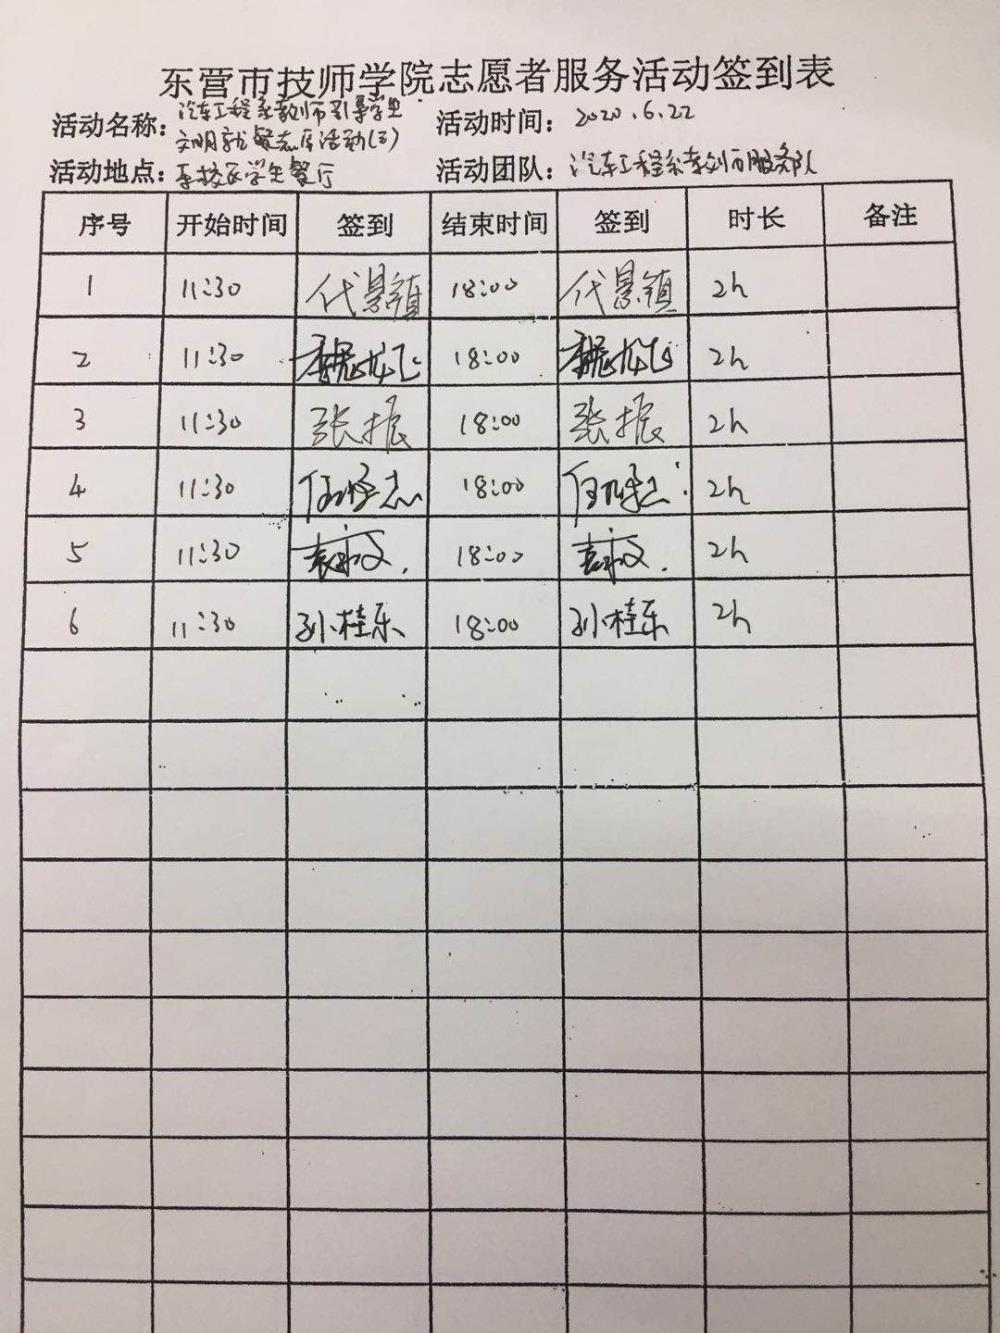 东营市技师学院志愿者服务活动签到表
活动名称：汽车工程系教师引导学生 活动时间：2020.6.22
文明就餐志愿活动(3)
活动地点：东校区学生餐厅 活动团队：汽车工程系教师服务队
序号 开始时间 签到 结束时间 签到 时长 备注
1 11:30 代景镇 18:00 代景镇 2h
2 11:30 18:00 2h
3 11:30 张振 18:00 张振 2h
4 11:30 18:00 2h
5 11:30 18:00 2h
6 11:30 孙桂乐 18:00 孙桂乐 2h